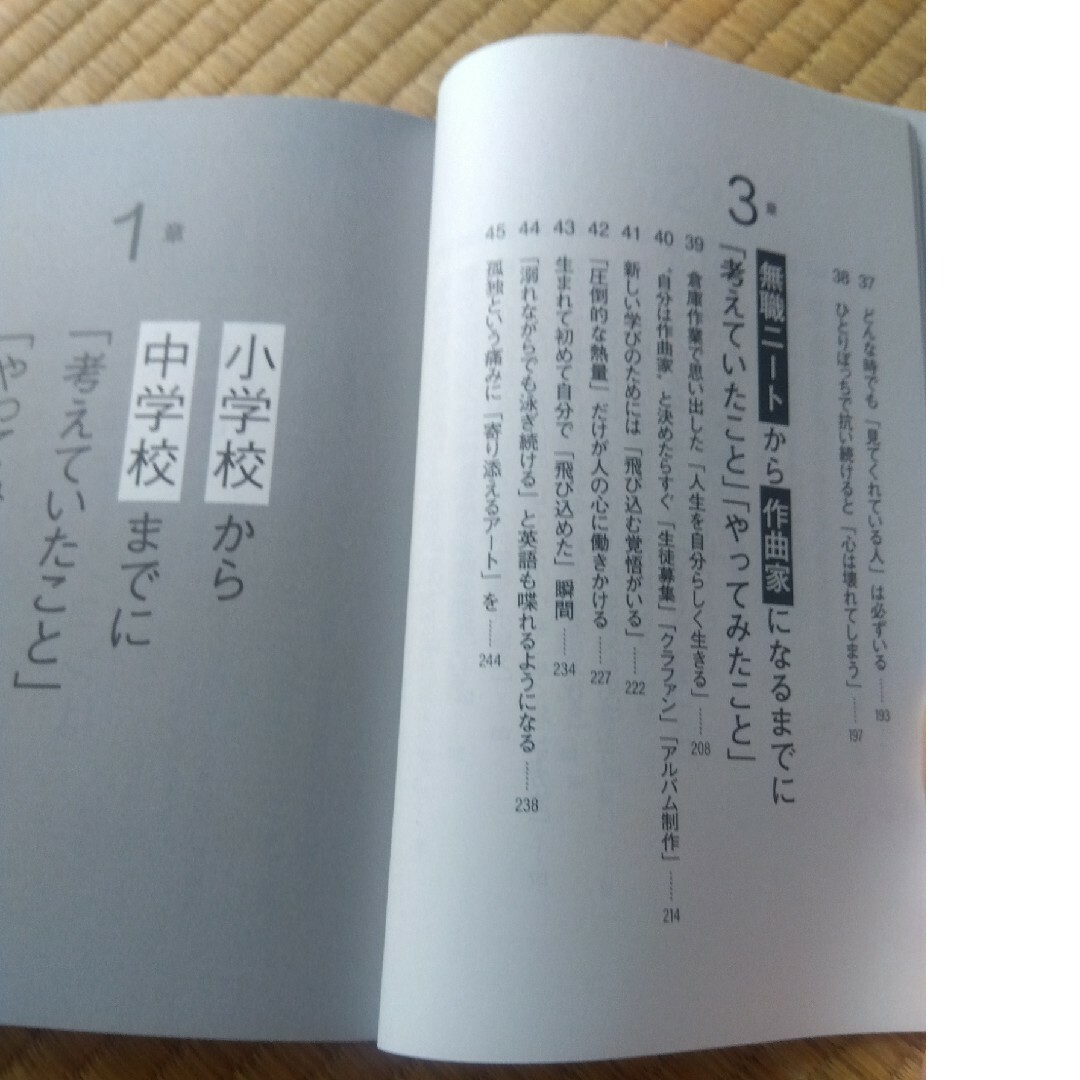 37 どんな時でも「見てくれている人」は必ずいる …… 193
38 ひとりぼっちで抗い続けると「心は壊れてしまう」 …… 197
3章
無職ニートから作曲家になるまでに
「考えていたこと」「やってみたこと」
39 倉庫作業で思い出した「人生を自分らしく生きる」 …… 208
40 “自分は作曲家”と決めたらすぐ「生徒募集」「クラファン」「アルバム制作」 …… 214
41 新しい学びのためには「飛び込む覚悟がいる」 …… 222
42 「圧倒的な熱量」だけが人の心に働きかける …… 227
43 生まれて初めて自分で「飛び込めた」瞬間 …… 234
44 「溺れながらでも泳ぎ続ける」と英語も喋れるようになる …… 238
45 孤独という痛みに「寄り添えるアート」を …… 244
1章
小学校から
中学校までに
「考えていたこと」
「やって